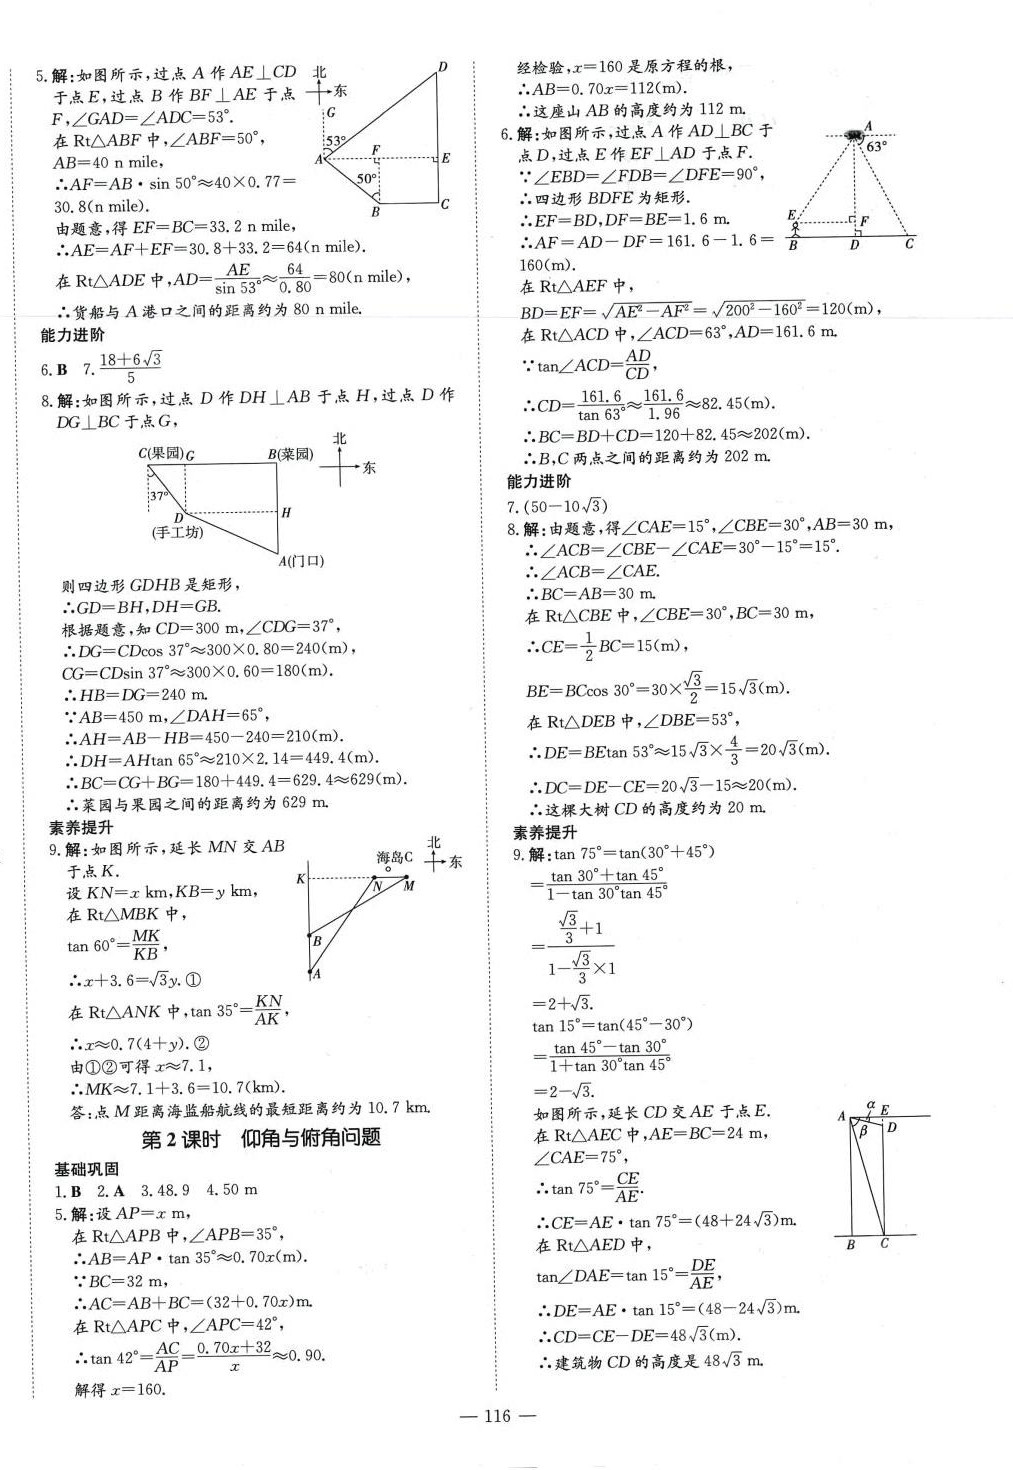 5.解:如图所示,过点 A 作 AE⊥CD
于点 E,过点 B 作 BF⊥AE 于点
F,∠GAD=∠ADC=53°.
在 Rt△ABF 中,∠ABF=50°,
AB=40 n mile,
∴AF=AB·sin 50°≈40×0.77=
30.8(n mile).
由题意,得 EF=BC=33.2 n mile,
∴AE=AF+EF=30.8+33.2=64(n mile).
在 Rt△ADE 中,AD=AE/sin 53°≈64/0.80=80(n mile),
∴货船与 A 港口之间的距离约为 80 n mile.
北
东
D
G
53°
A
F
E
50°
B
C
能力进阶
6.B 7.(18+6√3)/5
8.解:如图所示,过点 D 作 DH⊥AB 于点 H,过点 D 作
DG⊥BC 于点 G,
北
东
C(果园) G B(菜园)
37°
D
H
(手工坊)
A(门口)
则四边形 GDHB 是矩形,
∴GD=BH,DH=GB.
根据题意,知 CD=300 m,∠CDG=37°,
∴DG=CDcos 37°≈300×0.80=240(m),
CG=CDsin 37°≈300×0.60=180(m).
∴HB=DG=240 m.
∵AB=450 m,∠DAH=65°,
∴AH=AB−HB=450−240=210(m).
∴DH=AHtan 65°≈210×2.14=449.4(m).
∴BC=CG+BG=180+449.4=629.4≈629(m).
∴菜园与果园之间的距离约为 629 m.
素养提升
9.解:如图所示,延长 MN 交 AB
于点 K.
设 KN=x km,KB=y km,
在 Rt△MBK 中,
tan 60°=MK/KB,
∴x+3.6=√3y.①
在 Rt△ANK 中,tan 35°=KN/AK,
∴x≈0.7(4+y).②
由①②可得 x≈7.1,
∴MK≈7.1+3.6=10.7(km).
答:点 M 距离海监船航线的最短距离约为 10.7 km.
北
东
海岛C
K
N
M
B
A
第 2 课时 仰角与俯角问题
基础巩固
1.B 2.A 3.48.9 4.50 m
5.解:设 AP=x m,
在 Rt△APB 中,∠APB=35°,
∴AB=AP·tan 35°≈0.70x(m).
∵BC=32 m,
∴AC=AB+BC=(32+0.70x)m.
在 Rt△APC 中,∠APC=42°,
∴tan 42°=AC/AP=(0.70x+32)/x≈0.90.
解得 x=160.
经检验,x=160 是原方程的根,
∴AB=0.70x=112(m).
∴这座山 AB 的高度约为 112 m.
6.解:如图所示,过点 A 作 AD⊥BC 于
点 D,过点 E 作 EF⊥AD 于点 F.
∵∠EBD=∠FDB=∠DFE=90°,
∴四边形 BDFE 为矩形.
∴EF=BD,DF=BE=1.6 m.
∴AF=AD−DF=161.6−1.6=
160(m).
在 Rt△AEF 中,
BD=EF=√(AE²−AF²)=√(200²−160²)=120(m),
在 Rt△ACD 中,∠ACD=63°,AD=161.6 m.
∵tan∠ACD=AD/CD,
∴CD=161.6/tan 63°≈161.6/1.96≈82.45(m).
∴BC=BD+CD=120+82.45≈202(m).
∴B,C 两点之间的距离约为 202 m.
A
63°
E
F
B
D
C
能力进阶
7.(50−10√3)
8.解:由题意,得∠CAE=15°,∠CBE=30°,AB=30 m,
∴∠ACB=∠CBE−∠CAE=30°−15°=15°.
∴∠ACB=∠CAE.
∴BC=AB=30 m.
在 Rt△CBE 中,∠CBE=30°,BC=30 m,
∴CE=1/2 BC=15(m),
BE=BCcos 30°=30×√3/2=15√3(m).
在 Rt△DEB 中,∠DBE=53°,
∴DE=BEtan 53°≈15√3×4/3=20√3(m).
∴DC=DE−CE=20√3−15≈20(m).
∴这棵大树 CD 的高度约为 20 m.
素养提升
9.解:tan 75°=tan(30°+45°)
=(tan 30°+tan 45°)/(1−tan 30°tan 45°)
=(√3/3+1)/(1−√3/3×1)
=2+√3.
tan 15°=tan(45°−30°)
=(tan 45°−tan 30°)/(1+tan 30°tan 45°)
=2−√3.
如图所示,延长 CD 交 AE 于点 E.
在 Rt△AEC 中,AE=BC=24 m,
∠CAE=75°,
∴tan 75°=CE/AE.
∴CE=AE·tan 75°=(48+24√3)m.
在 Rt△AED 中,
tan∠DAE=tan 15°=DE/AE,
∴DE=AE·tan 15°=(48−24√3)m.
∴CD=CE−DE=48√3(m).
∴建筑物 CD 的高度是 48√3 m.
A
α
E
β
D
B
C
— 116 —